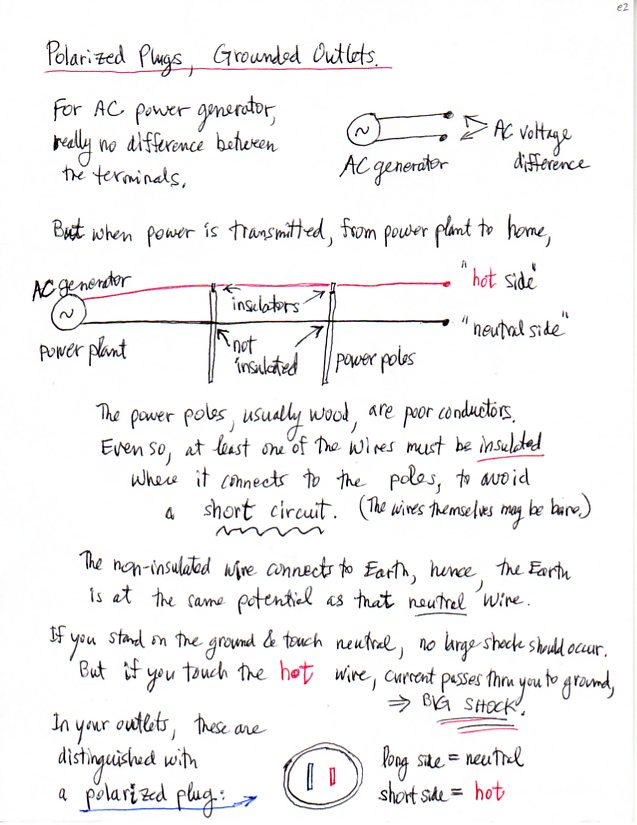 e2
Polarized Plugs, Grounded Outlets.
For AC power generator,
really no difference between
the terminals.
~
AC generator
AC voltage
difference
But when power is transmitted, from power plant to home,
AC generator
~
power plant
insulators
not
insulated
power poles
"hot side"
"neutral side"
The power poles, usually wood, are poor conductors.
Even so, at least one of the wires must be insulated
where it connects to the poles, to avoid
a short circuit. (The wires themselves may be bare.)
The non-insulated wire connects to Earth, hence, the Earth
is at the same potential as that neutral wire.
If you stand on the ground & touch neutral, no large shock should occur.
But if you touch the hot wire, current passes thru you to ground,
⇒ BIG SHOCK.
In your outlets, these are
distinguished with
a polarized plug:
long side = neutral
short side = hot